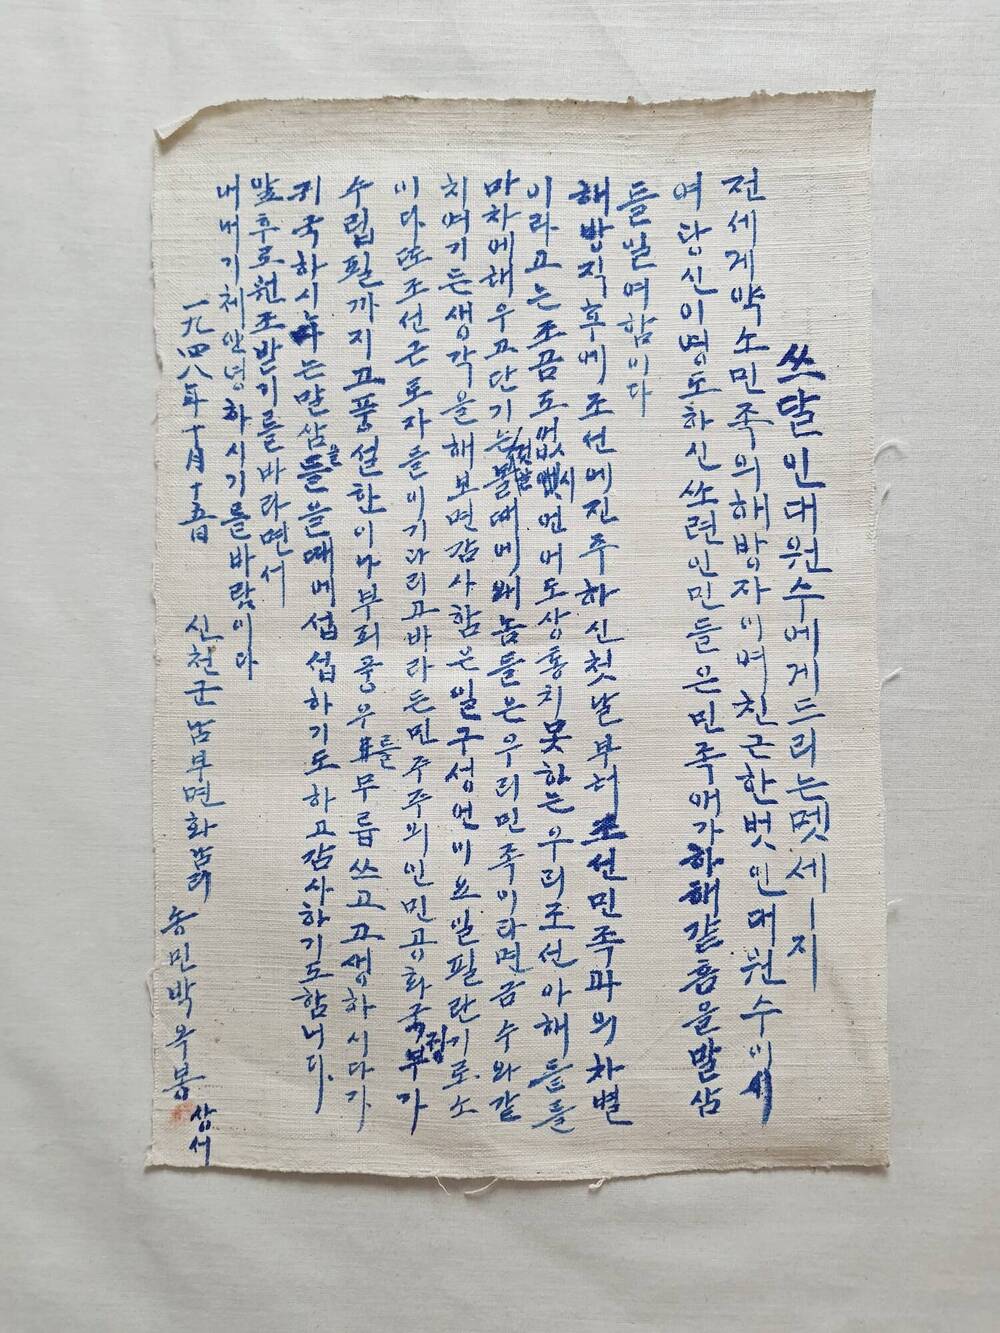 쓰딸인대원수에게드리는멧세ㅣ지
전세게약소민족의해방자이며친근한벗인대원수이시
여당신이령도하신쏘련인민들은민족애가하해갇흠을말삼
들일여함이다
해방직후에조선에진주하신첫날부터조선민족과의차별
이라고는조곰도없시언어도상통치못하는우리조선아해들을
마차에해우고단기는것을볼때에왜놈들은우리민족이라면금수와같
치여기든생각을해보면감사함은일구성언이요일필란기로소
이다또조선근로자들이기다리고바라든민주주의인민공화국부정가
수립필까지고풍설한이나부희중우를무릅쓰고고생하시다가
귀국하시는말삼을들을때에섭섭하기도하고감사하기도함니다.
앞후로원조받기를바라면서
내내기체안녕하시기를바람이다
一九四八年十月十五日
신천군남부면화남리 농민박우봉 상서